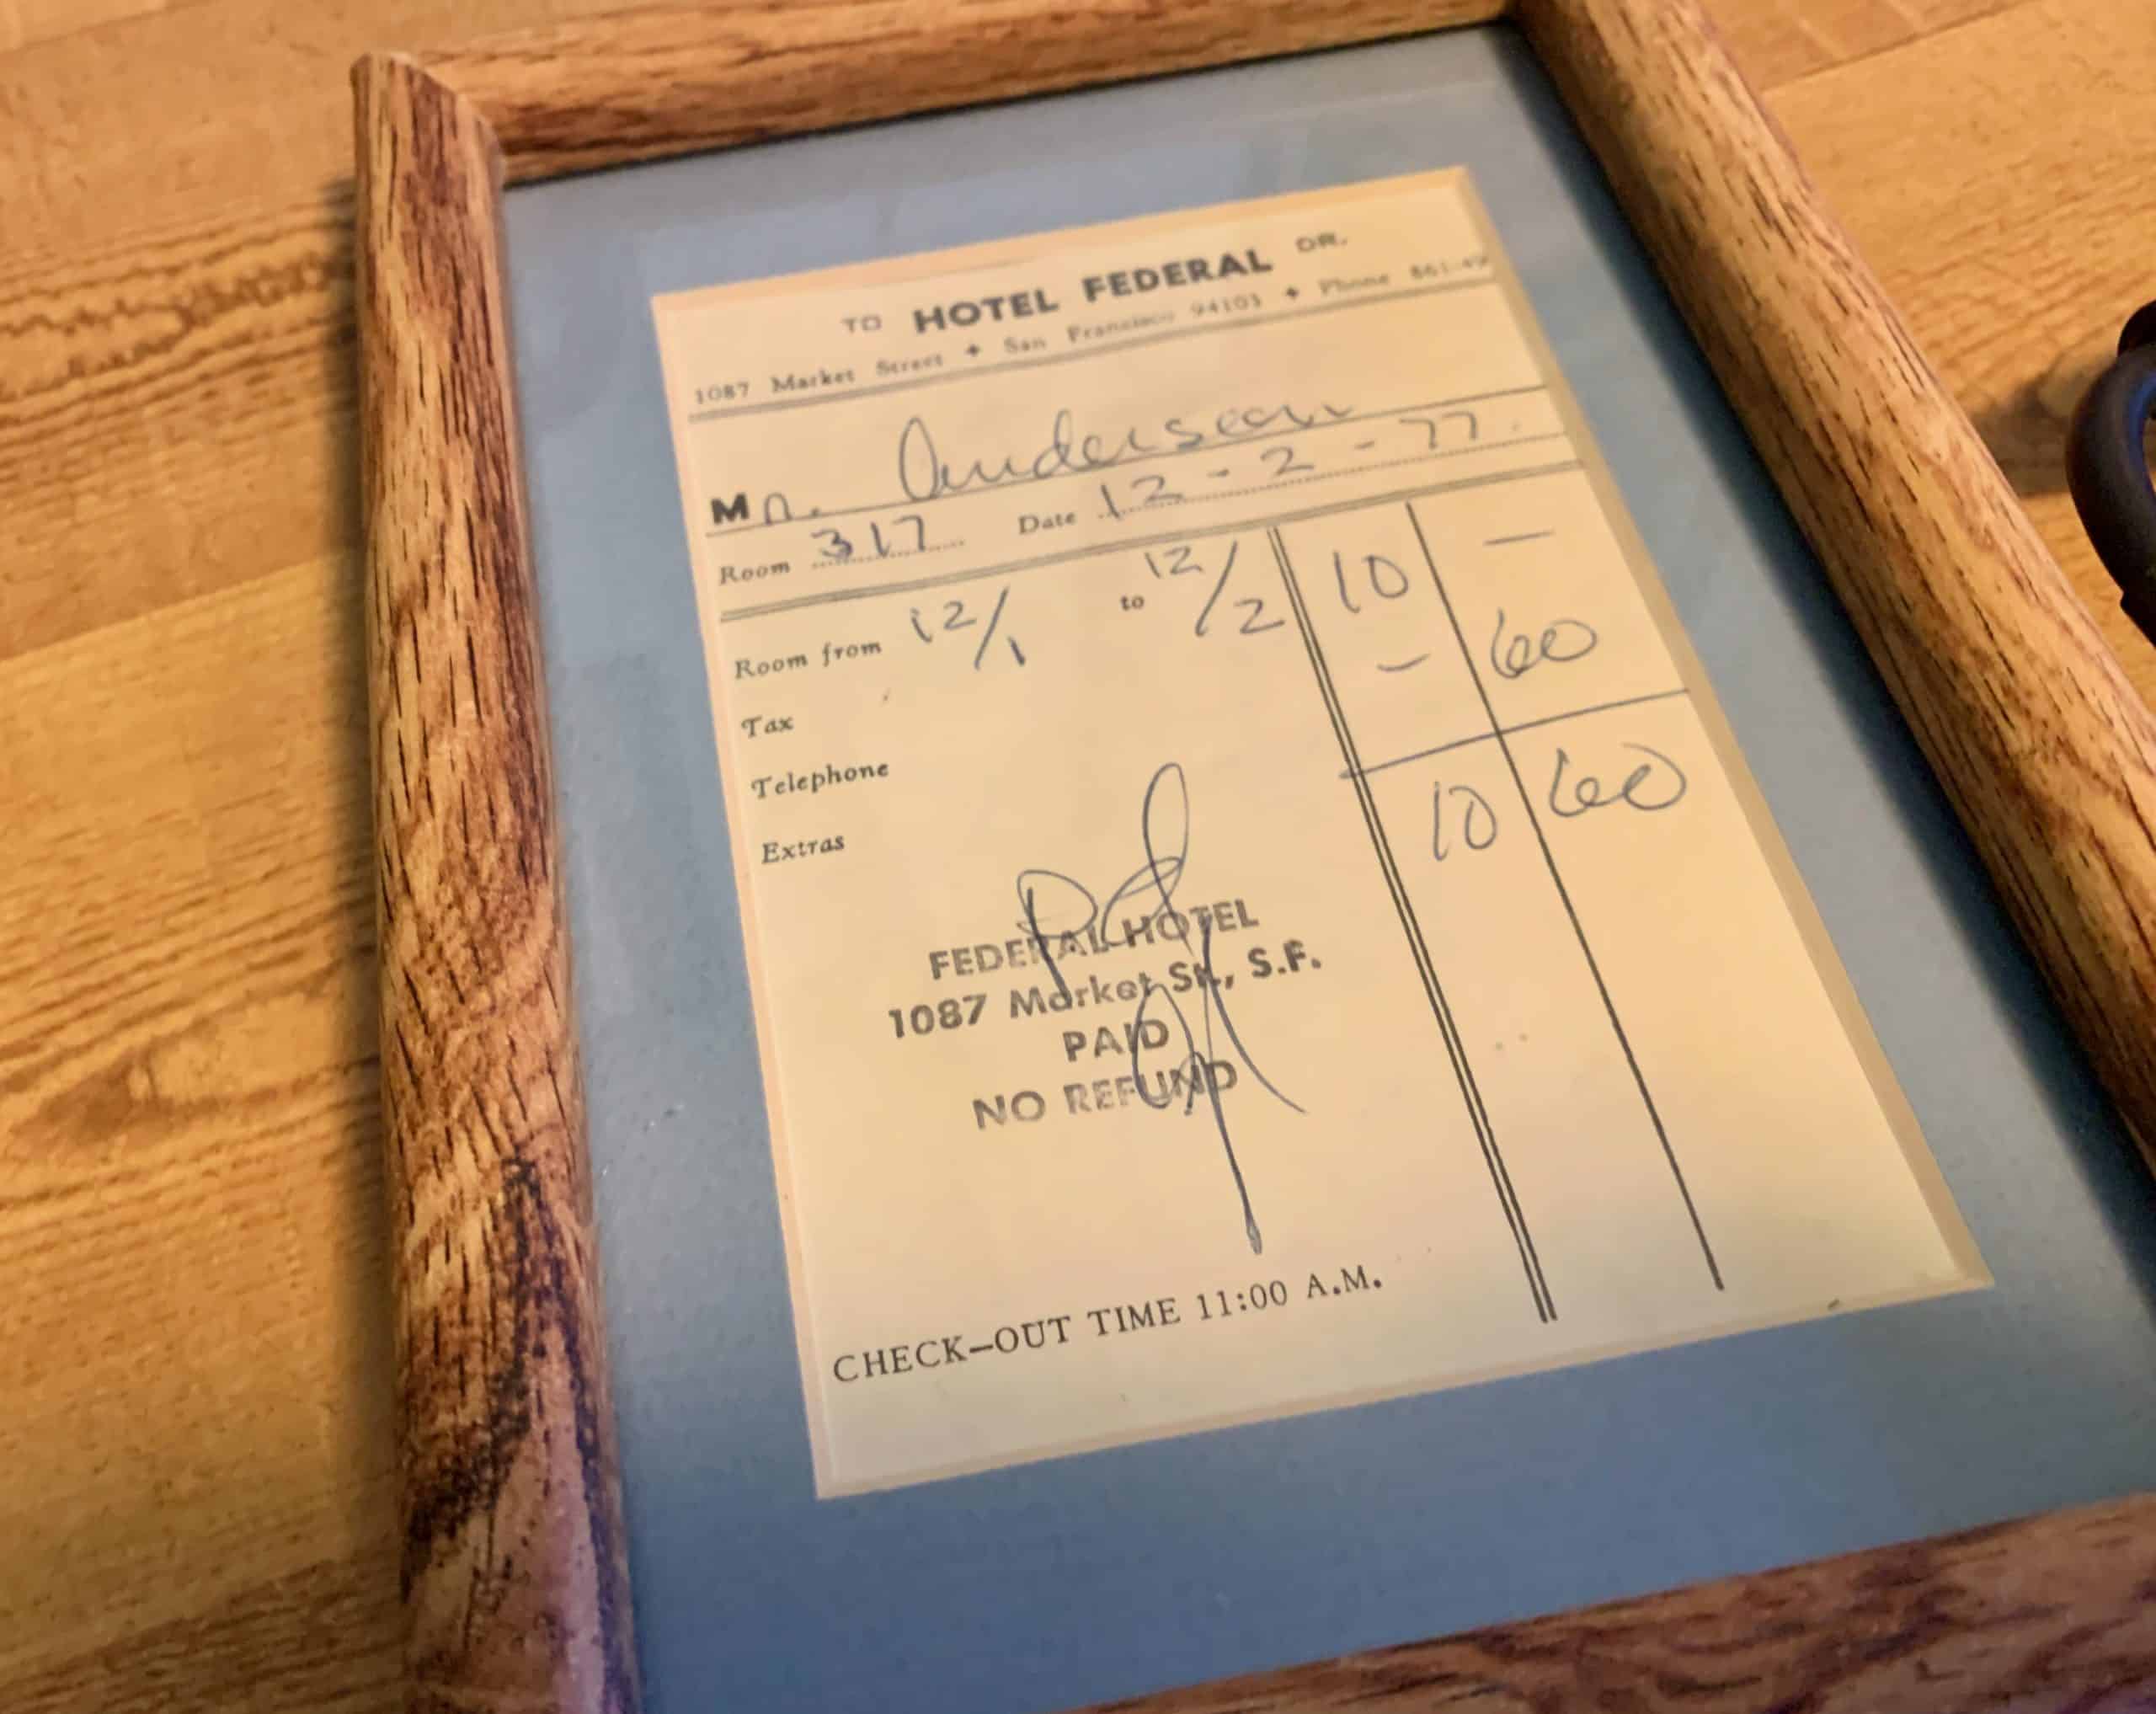 TO HOTEL FEDERAL DR.
1087 Market Street + San Francisco 94103 + Phone 861-49
Mr. Anderson
Room 317 Date 12-2-77
Room from 12/1 to 12/2 10 –
Tax – 60
Telephone
10 60
Extras
Pd
FEDERAL HOTEL
1087 Market St., S.F.
PAID
NO REFUND
CHECK–OUT TIME 11:00 A.M.